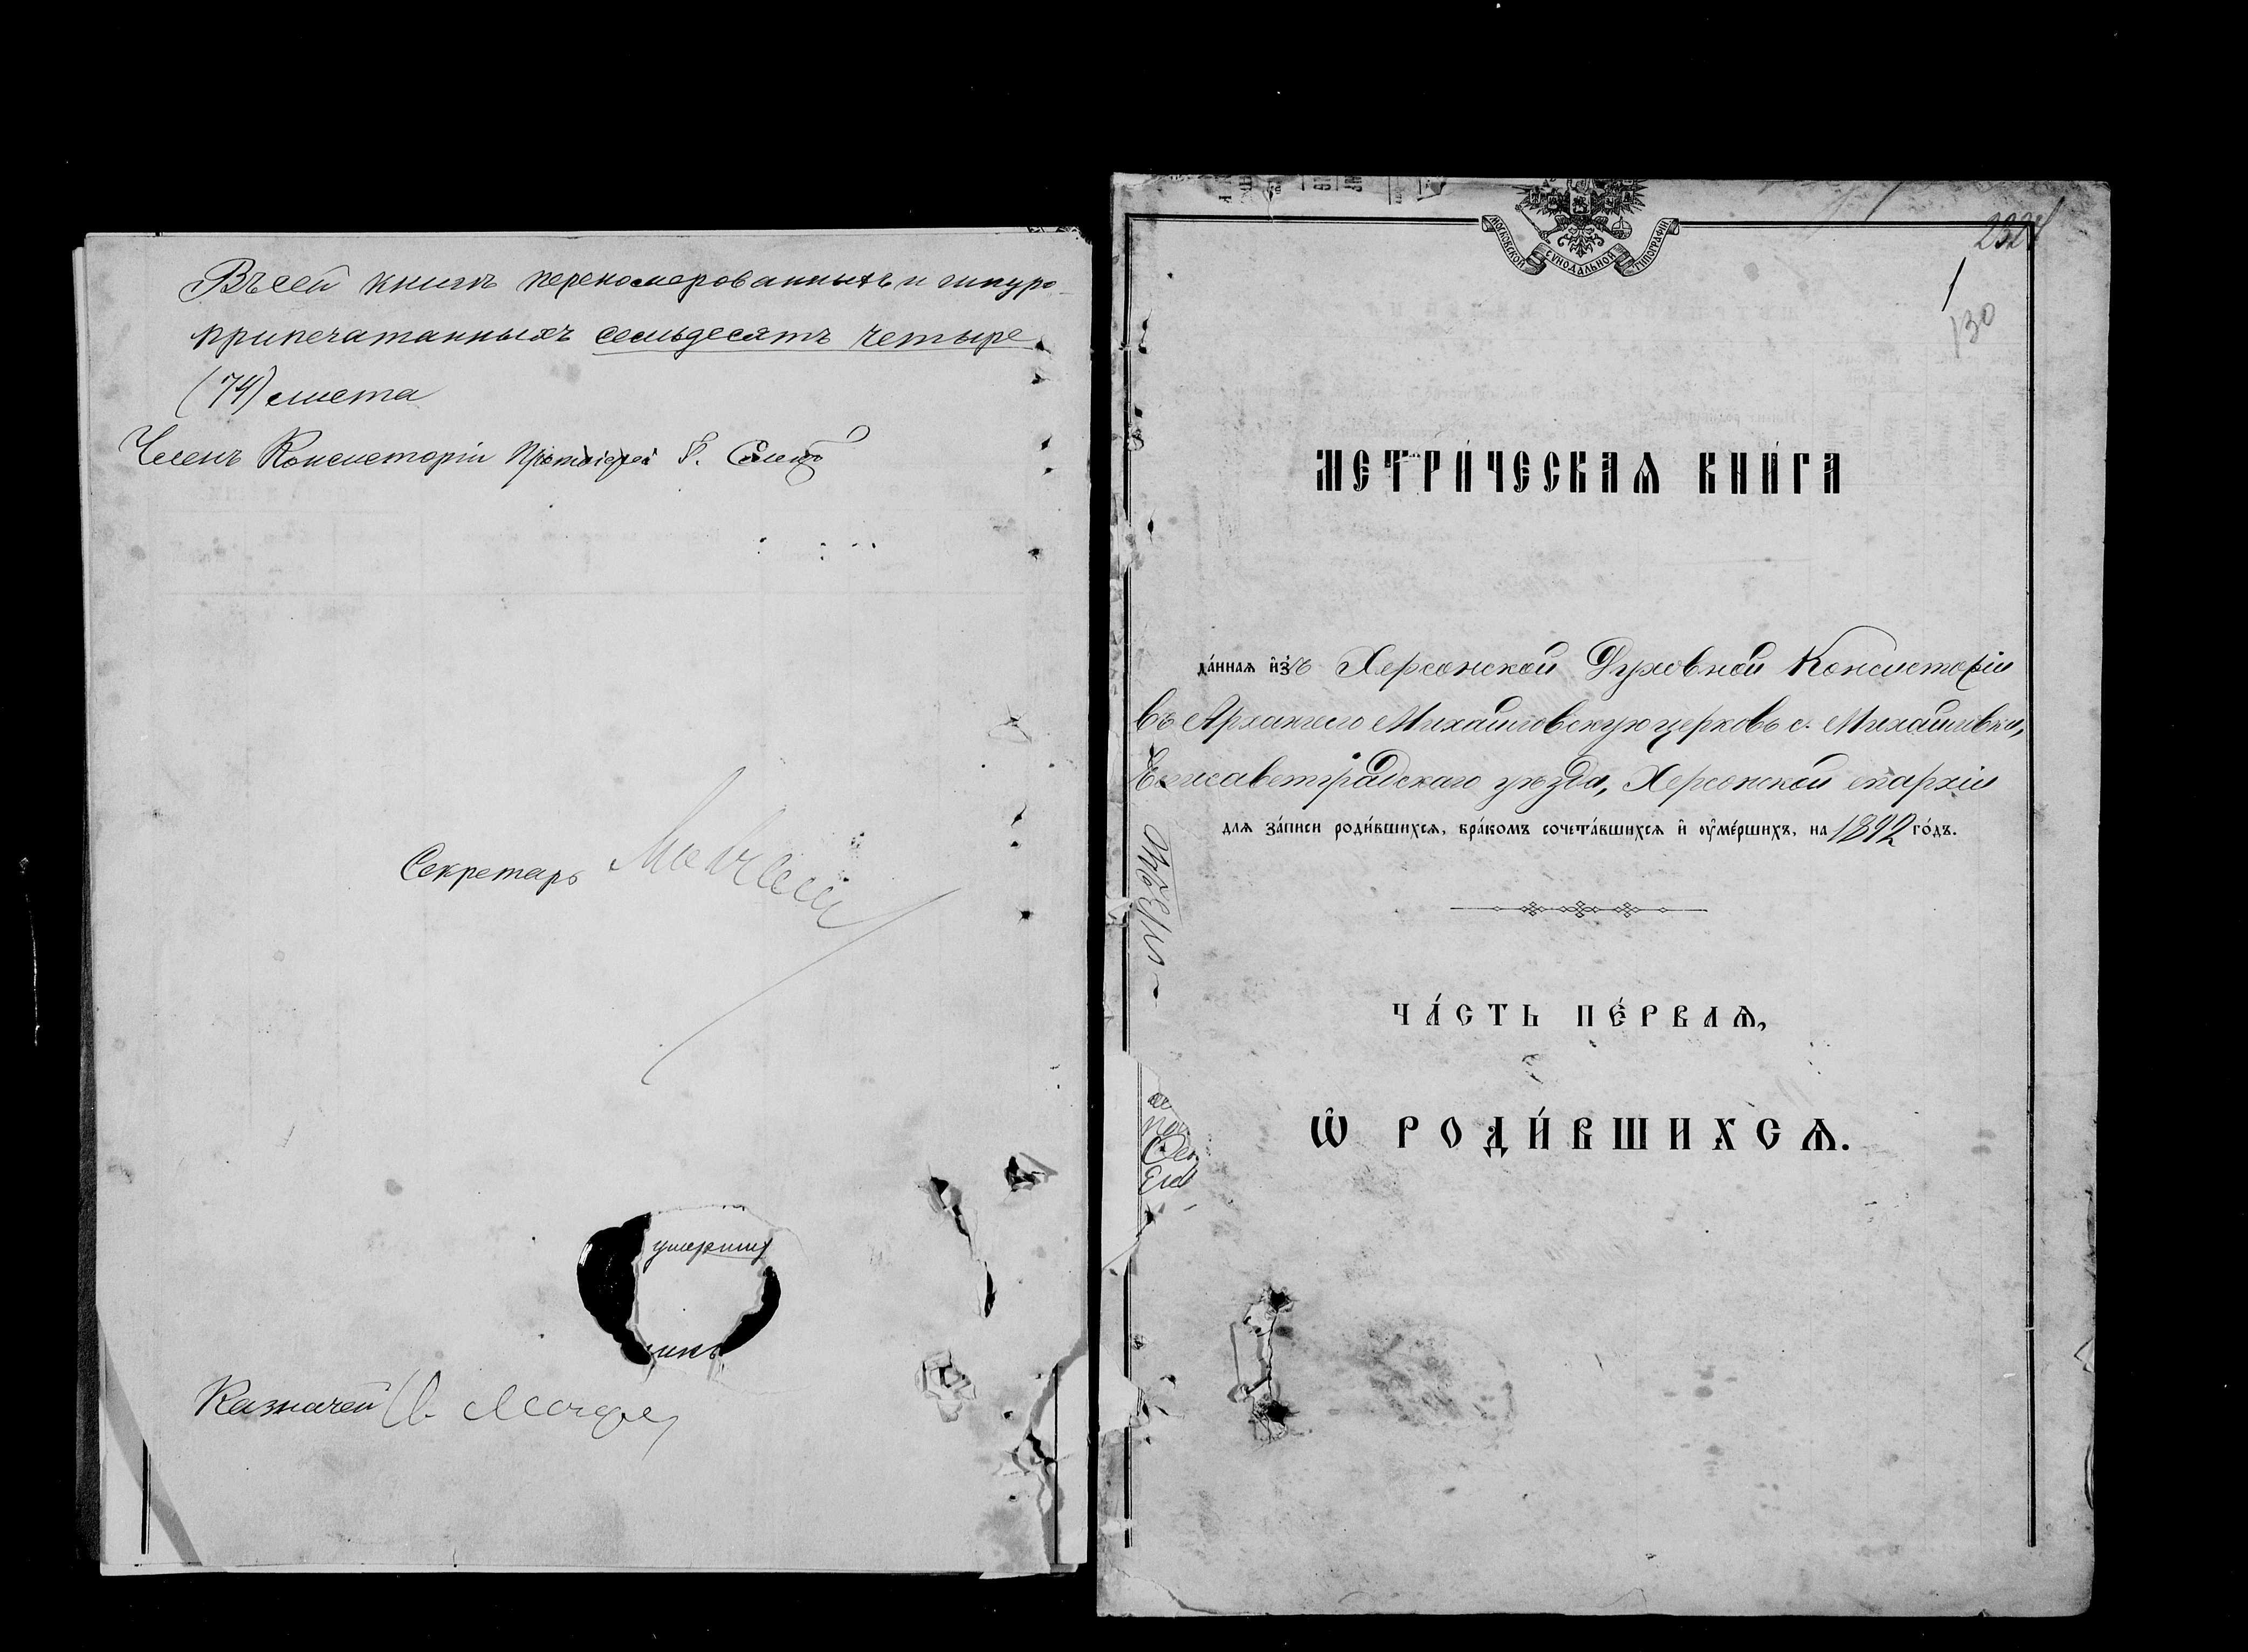 Въ сей книгѣ перекомерованныхъ и шнуро-
припечатанныхъ семьдесятъ четыре
(74) листа
Членъ Консисторіи Протоіерей
Секретарь
умерших
Казначей
МОСКОВСКОЙ СѴНОДАЛЬНОЙ ТИПОГРАФІИ
232
1
130
МЕТРИ́ЧЕСКАѦ КНИ́ГА
да́ннаѧ и҆зъ Херсонской Духовной Консисторіи
въ Архангело Михайловскую церковь с. Михайловки,
Елисаветградскаго уѣзда, Херсонской епархіи
длѧ за́писи роди́вшихсѧ, бра́комъ сочета́вшихсѧ и҆ ᲂу҆ме́ршихъ, на 1892 го́дъ.
ЧА́СТЬ ПЕ́РВАѦ,
Ѡ҆ РОДИ́ВШИХСѦ.